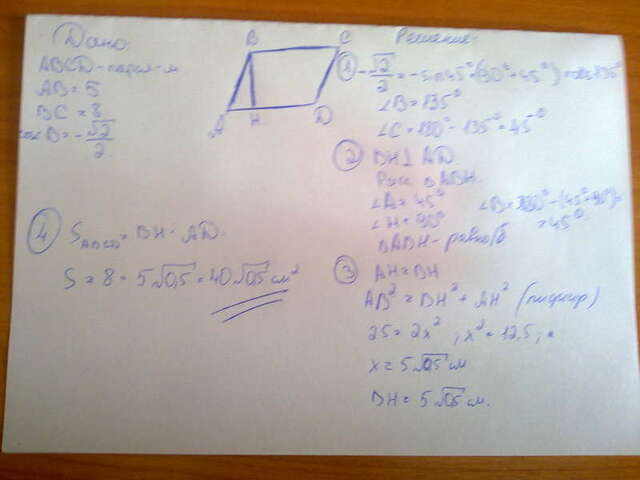 Дано:
ABCD - парал-м
AB = 5
BC = 8
cos B = -√2/2
B C
A H D
Решение:
① -√2/2 = -sin45° (90° + 45°) = cos 135°
∠B = 135°
∠C = 180° - 135° = 45°
② BH ⊥ AD
Расс. △ABH.
∠A = 45° ∠B = 180° - (45° + 90°) =
∠H = 90° = 45°
△ABH - равноб
③ AH = BH
AB² = BH² + AH² (пифагор)
25 = 2x², x² = 12,5,
x = 5√0,5 см
BH = 5√0,5 см.
④ S ABCD = BH · AD.
S = 8 · 5√0,5 = 40√0,5 см²